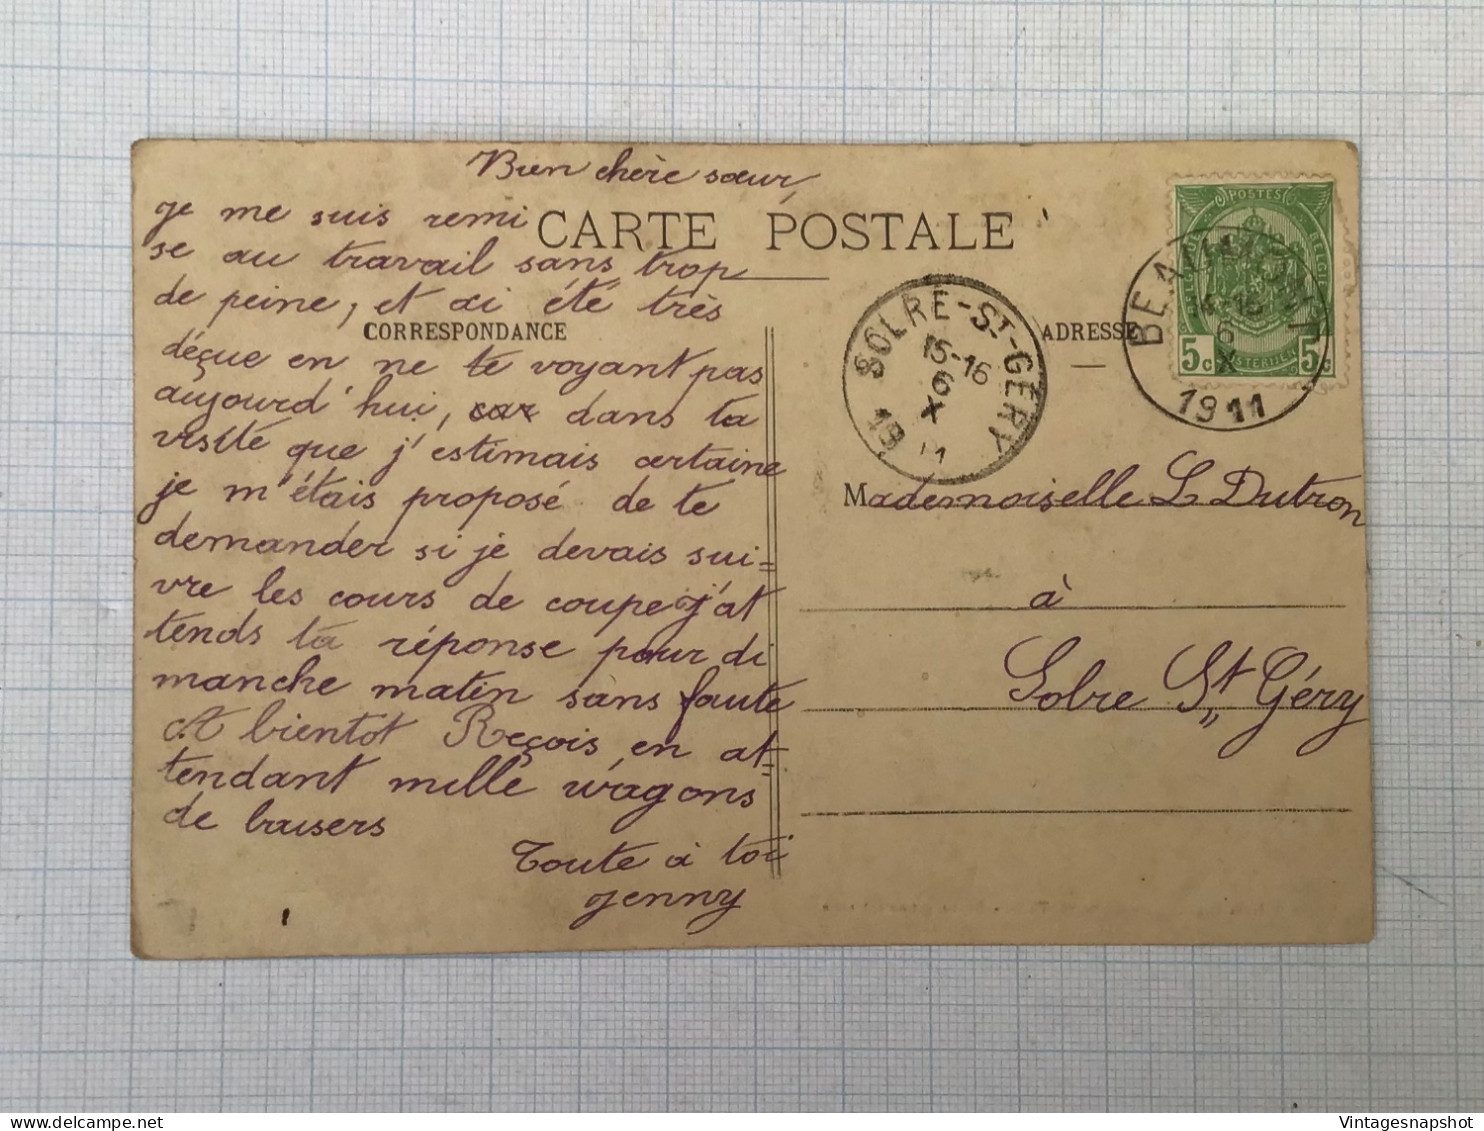 Bien chère sœur,
je me suis remi
se au travail sans trop
de peine, et ai été très
déçue en ne te voyant pas
aujourd'hui, car dans ta
visite que j'estimais certaine
je m'étais proposé de te
demander si je devais sui=
vre les cours de coupe j'at
tends ta réponse pour di
manche matin sans faute
A bientôt Reçois en at=
tendant mille wagons
de baisers
Toute à toi
Jenny
CARTE POSTALE
CORRESPONDANCE
ADRESSE
SOLRE-ST-GÉRY
15-16
6
X
19 11
POSTES
BELGIQUE
5c 5c
BEAUMONT
6
X
1911
Mademoiselle L Dutron
à
Solre St Géry
Vintagesnapshot